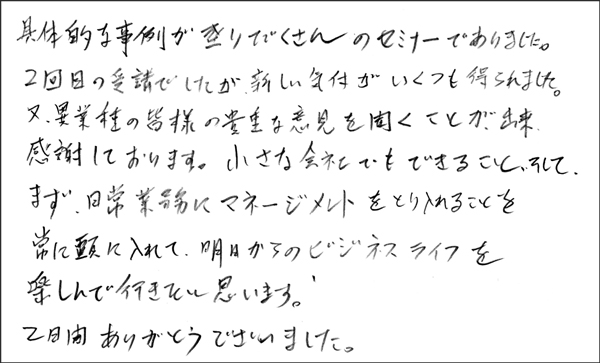 具体的な事例が盛りだくさんのセミナーでありました。
2回目の受講でしたが、新しい気付がいくつも得られました。
又、異業種の皆様の貴重な意見を聞くことが、出来、
感謝しております。小さな会社でもできること、そして、
まず、日常業務にマネージメントをとり入れることを
常に頭に入れて、明日からのビジネスライフを
楽しんで行きたい思います。
2日間ありがとうございました。